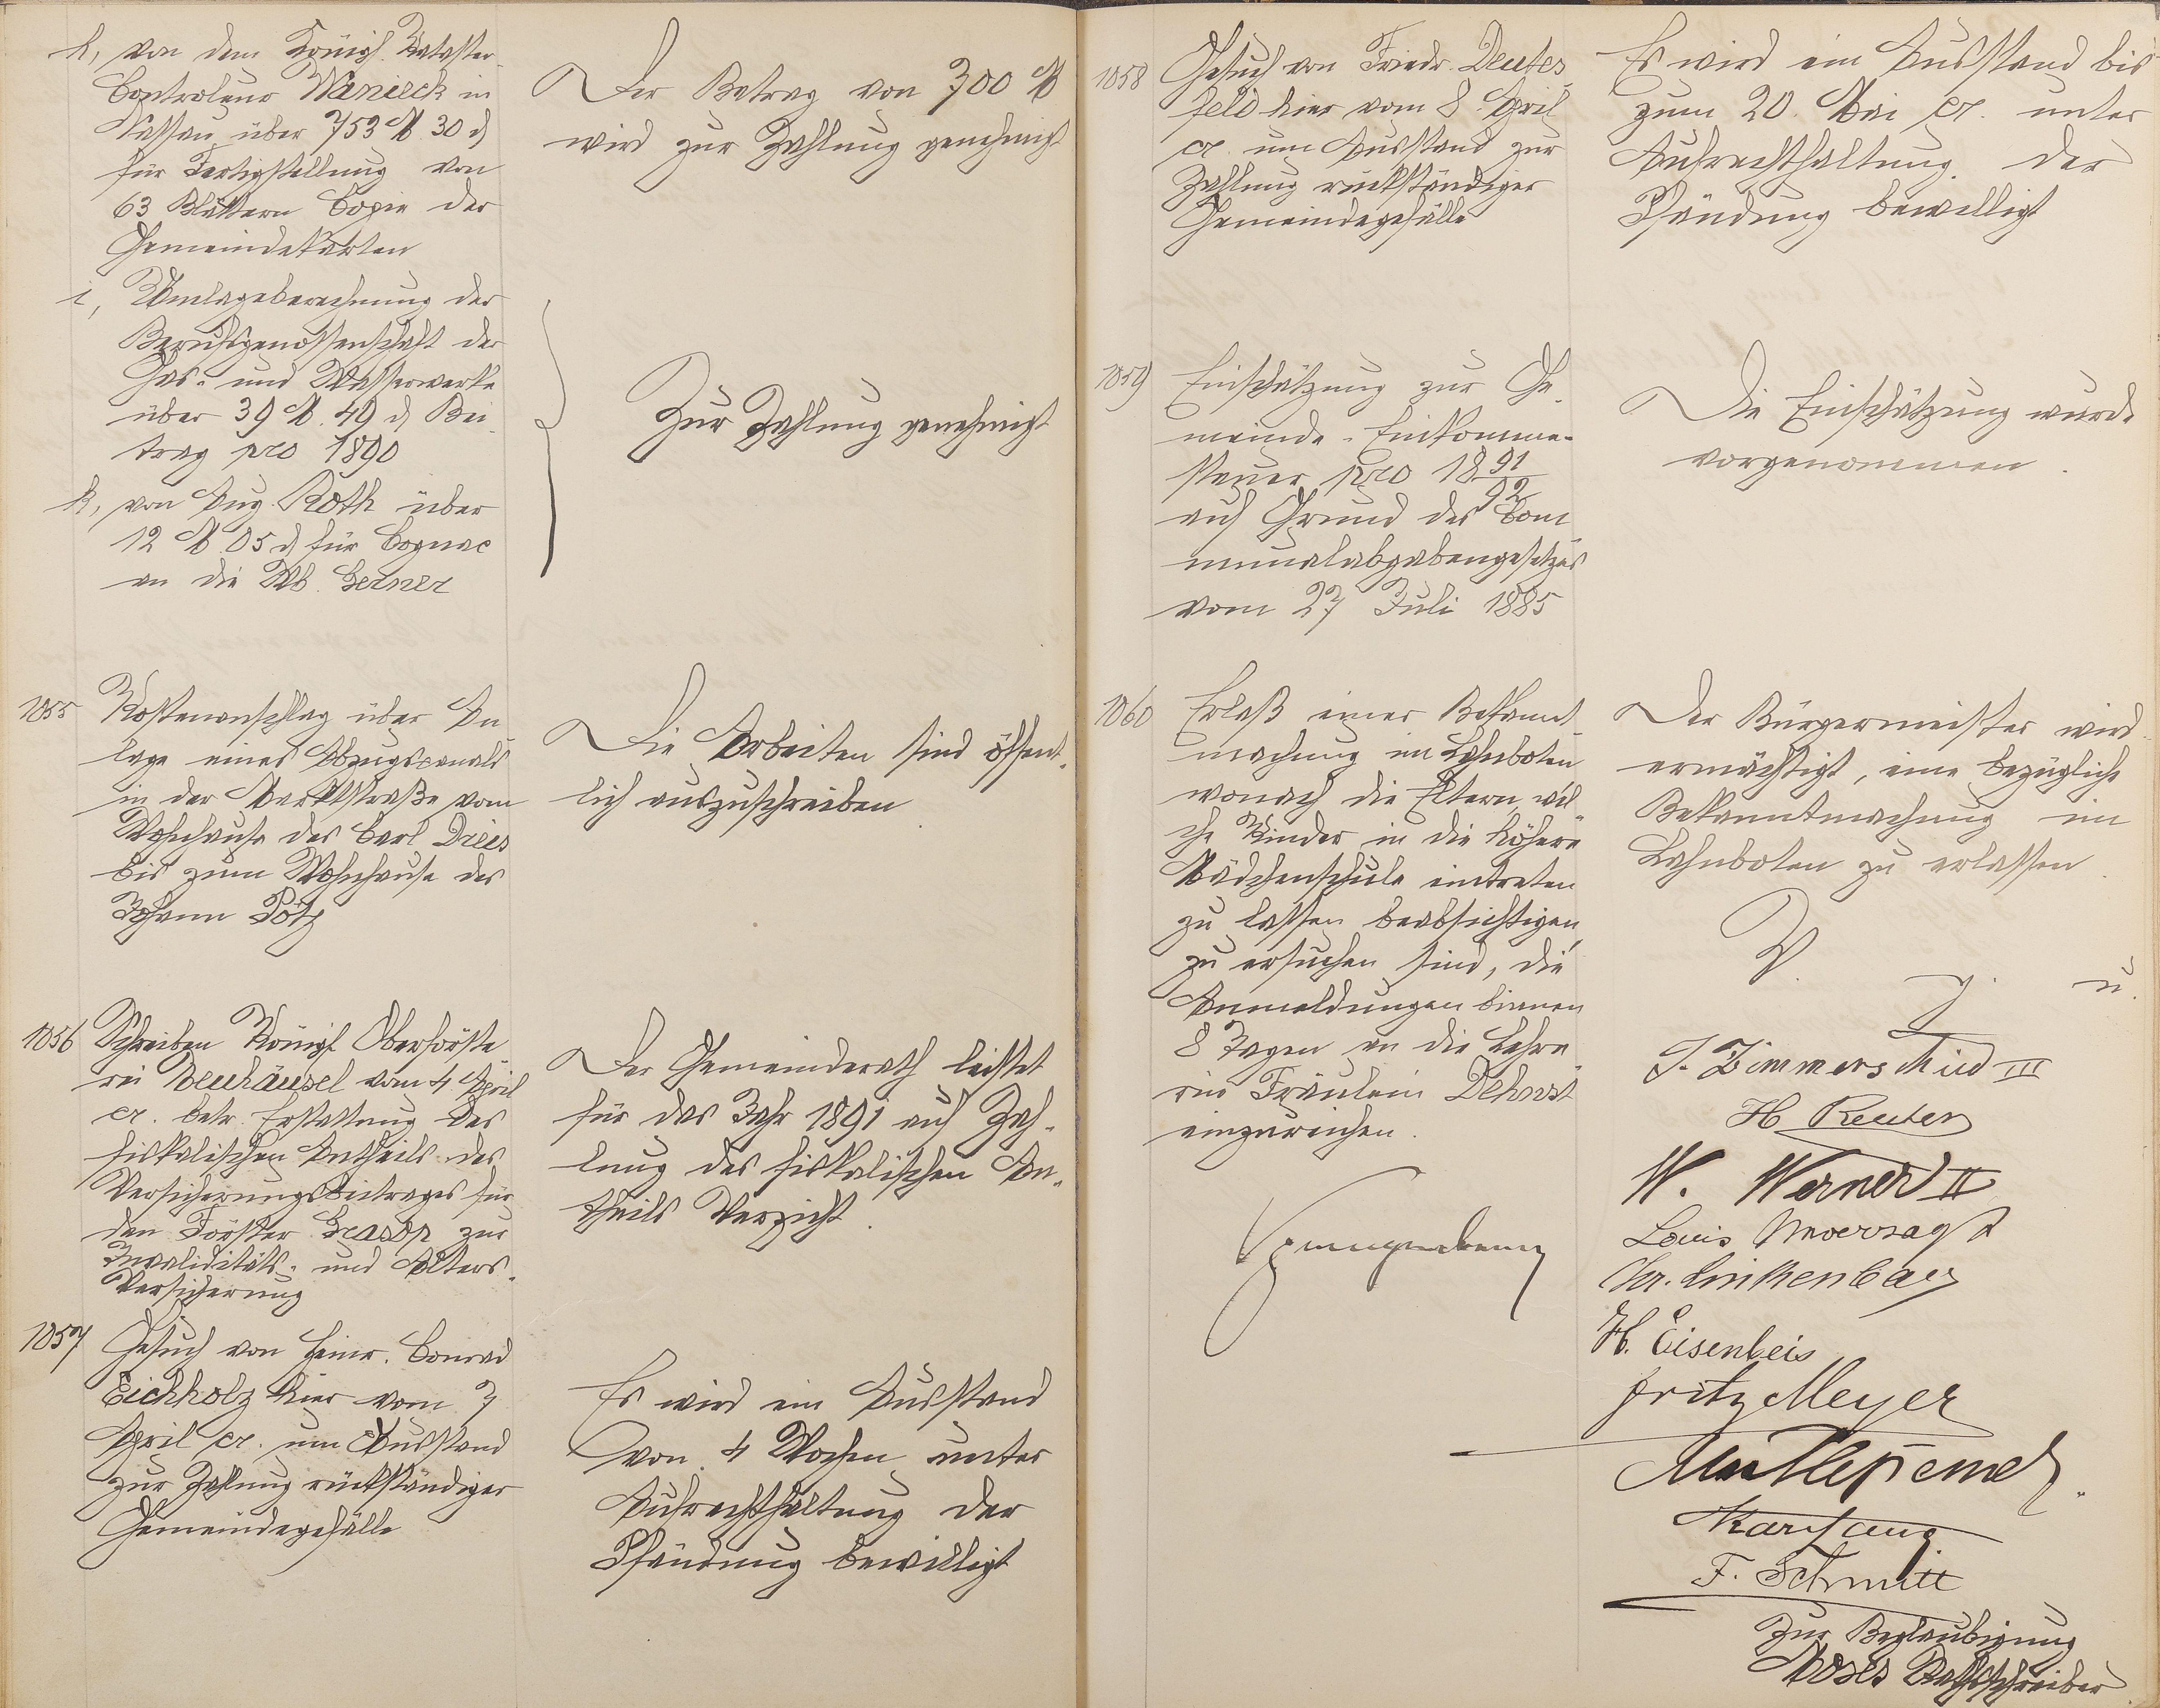 h, von dem Königl. Kataster-
Controleur Wanieck in
Nassau über 753 M 30 d
für Fertigstellung von
63 Blättern Copie der
Gemeindekarten
Der Betrag von 700 M
wird zur Zahlung genehmigt
i, Umlageberechnung der
Berufsgenossenschaft der
Gas- und Wasserwerke
über 39 M. 49 d Bei-
trag pro 1890
k, von Aug. Roth über
12 M. 05 d für Cognac
an die Wb. Gerner
Zur Zahlung genehmigt
1055 Kostenanschlag über An
lage eines Abzugscanals
in der Marktstraße vom
Wohnhause des Carl Drees
bis zum Wohnhause des
Johann Pötz
Die Arbeiten sind öffent-
lich auszuschreiben
1056 Schreiben Königl. Oberförste
rei Neuhäusel vom 4 April
cr. betr. Erstattung des
fiskalischen Antheils des
Versicherungsbeitrages für
den Förster zur
Invaliditäts- und Alters-
Versicherung
Der Gemeinderath leistet
für das Jahr 1891 auf Zah-
lung des fiskalischen An-
theils Verzicht.
1057 Gesuch von Heinr. Conrad
Eichholz hier vom 7
April cr. um Ausstand
zur Zahlung rückständiger
Gemeindegefälle
Es wird ein Ausstand
von 4 Wochen unter
Aufrechthaltung der
Pfändung bewilligt
1058 Gesuch von Friedr. Deutes-
feld hier vom 8 April
cr. um Ausstand zur
Zahlung rückständiger
Gemeindegefälle
Es wird ein Ausstand bis
zum 20. Mai cr. unter
Aufrechthaltung der
Pfändung bewilligt
1059 Einschätzung zur Ge-
meinde-Einkommen-
steuer pro 1891/92
auf Grund des Com
munalabgabengesetzes
vom 27 Juli 1885
Die Einschätzung wurde
vorgenommen.
1060 Erlaß einer Bekannt
machung im Lahnboten
wonach die Eltern, wel-
che Kinder in die höhere
Mädchenschule eintreten
zu lassen beabsichtigen,
zu ersuchen sind, die
Anmeldungen binnen
8 Tagen an die Lehre
rin Fräulein Dehnst
einzureichen.
Der Bürgermeister wird
ermächtigt, eine bezügliche
Bekanntmachung im
Lahnboten zu erlassen.
V. g. u.
J. Zimmerschied III
H Reuter
W. Werner II
Louis Unverzagt
Chr. Linkenbach
H. Eisenbeis
Fritz Meyer
F. Schmitt
Zur Beglaubigung
Rathschreiber